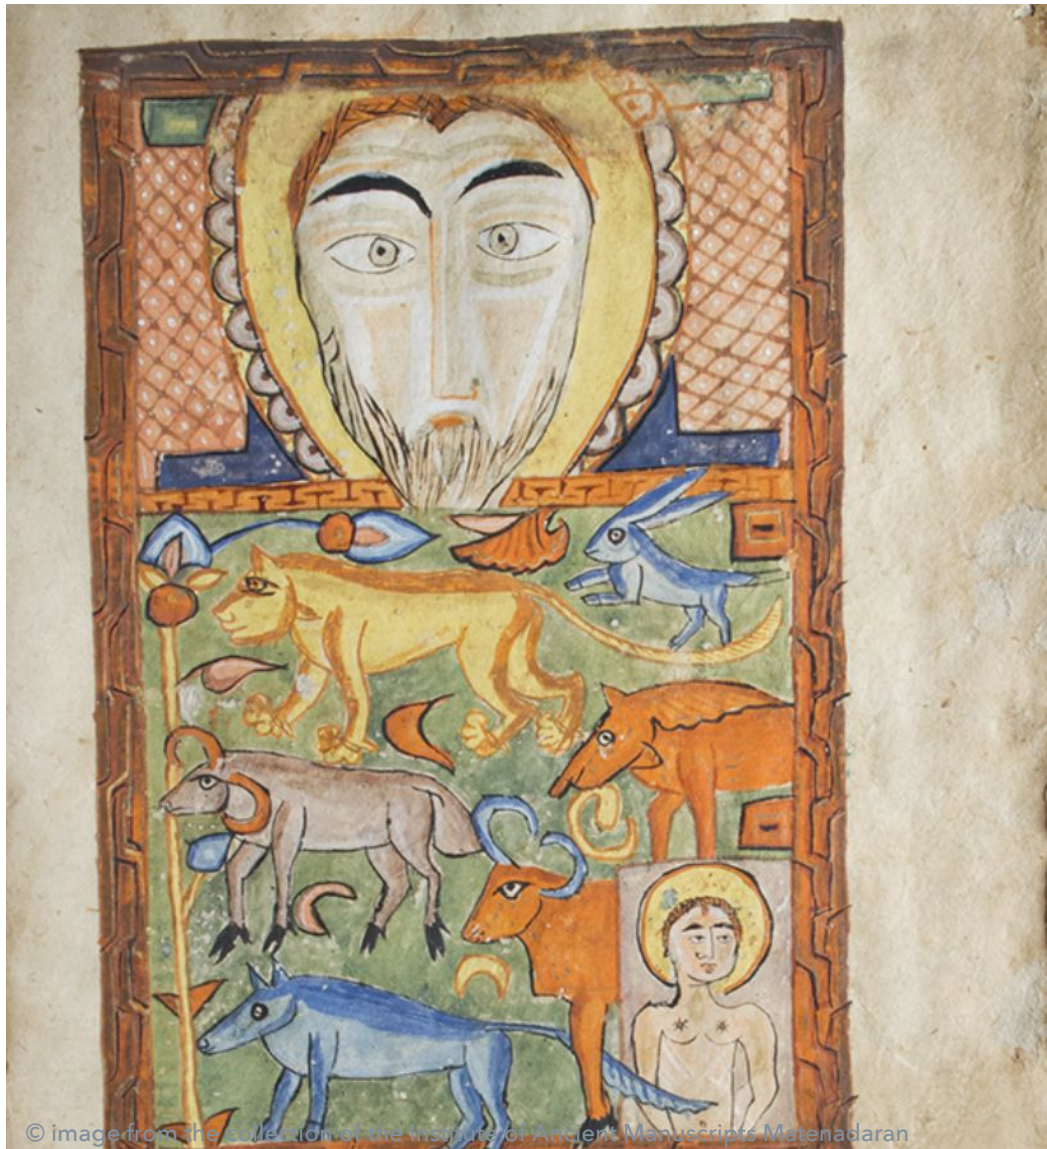 © image from the collection of the Institute of Ancient Manuscripts Matenadaran